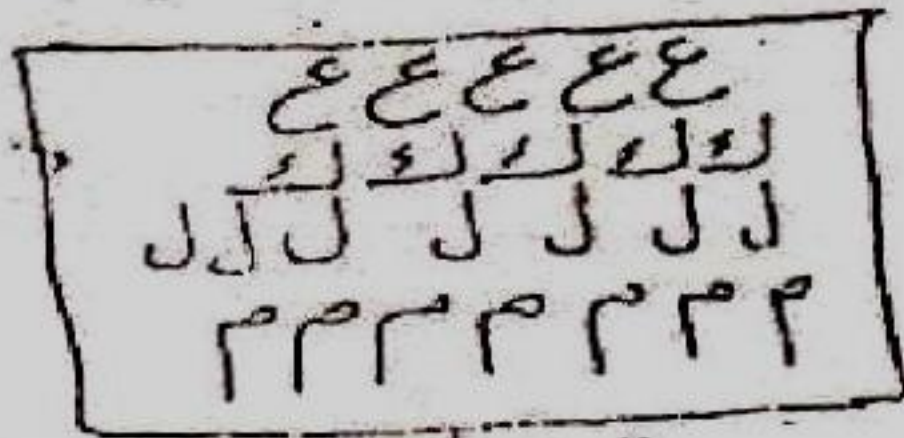 ع ع ع ع ع
ك ك ك ك ك
ل ل ل ل ل ل ل
م م م م م م م